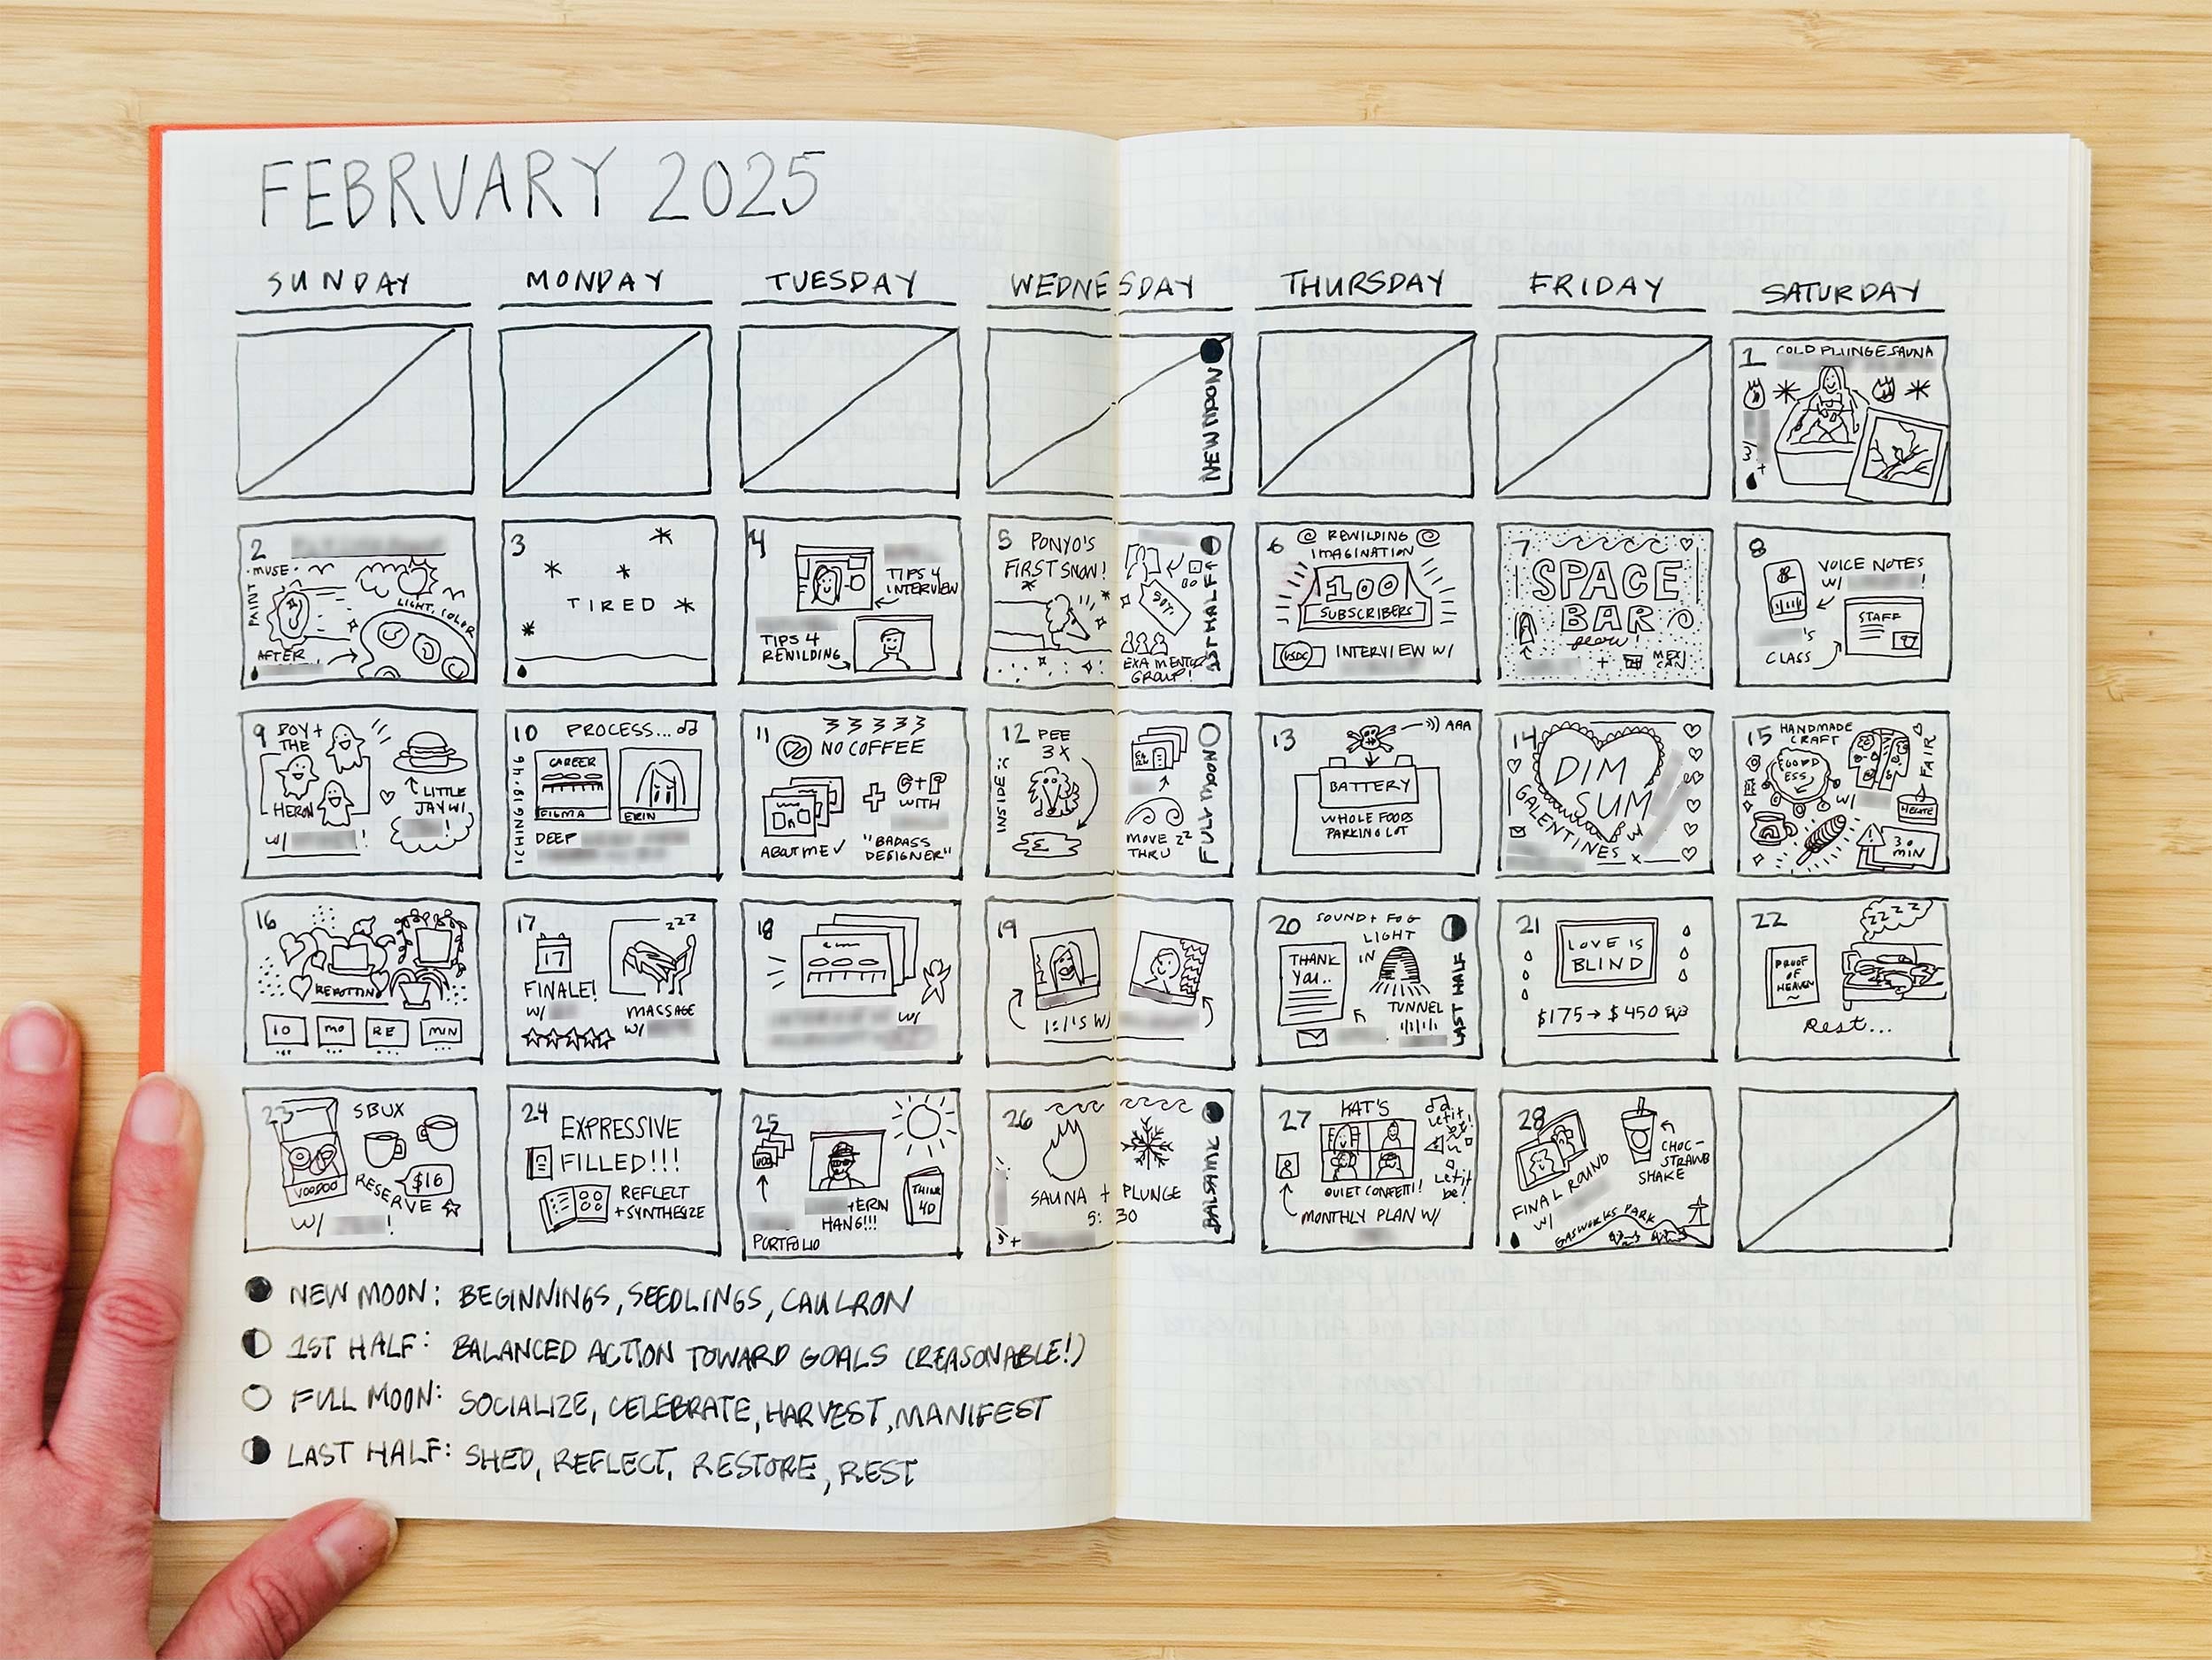 FEBRUARY 2025
SUNDAY MONDAY TUESDAY WEDNESDAY THURSDAY FRIDAY SATURDAY
NEW MOON
1 COLD PLUNGE SAUNA
3
+
2
MUSE
PAINT
LIGHT, COLOR
AFTER
3
TIRED
4
TIPS 4
INTERVIEW
TIPS 4
REWILDING
5 PONYO'S
FIRST SNOW!
EXA MENTOR
GROUP!
1ST HALF
6 REWILDING
IMAGINATION
100
SUBSCRIBERS
USDC
INTERVIEW W/
7
SPACE
BAR
+ MEXI
CAN
8
VOICE NOTES
W/ !
STAFF
'S
CLASS
9 BOY +
THE
HERON
LITTLE
JAYWI
!
W/ !
10 PROCESS...
ICHING 18.4.6
CAREER
FIGMA ERIN
DEEP
11
NO COFFEE
+
WITH
ABOUT ME ✓
"BADASS
DESIGNER"
12 PEE
3X
INSIDE :(
MOVE
THRU
FULL MOON
13
AAA
BATTERY
WHOLE FOODS
PARKING LOT
14
DIM
SUM
GALENTINES W/
15 HANDMADE
CRAFT
FAIR
W/
HECATE
30
MIN
16
REPOTTING
10 MO RE MIN
17
17
ZZZ
FINALE!
W/
MASSAGE
W/
18
W/
19
1:1'S W/
20 SOUND + FOG
LIGHT
IN
THANK
YOU..
TUNNEL
LAST HALF
21
LOVE IS
BLIND
$175 → $450
22
ZZZZ
PROOF
OF
HEAVEN
REST...
23
SBUX
VOODOO
$16
RESERVE
W/ !
24
EXPRESSIVE
FILLED!!!
REFLECT
+ SYNTHESIZE
25
ERN
HANG!!!
THINK
4D
PORTFOLIO
26
SAUNA + PLUNGE
5:30
BALSAMIC
27 KAT'S
Let it
be!
Let it
be!
QUIET CONFETTI!
MONTHLY PLAN W/
28
CHOC-
STRAWB
SHAKE
FINAL ROUND
W/
GASWORKS PARK
NEW MOON: BEGINNINGS, SEEDLINGS, CAULRON
1ST HALF: BALANCED ACTION TOWARD GOALS (REASONABLE!)
FULL MOON: SOCIALIZE, CELEBRATE, HARVEST, MANIFEST
LAST HALF: SHED, REFLECT, RESTORE, REST